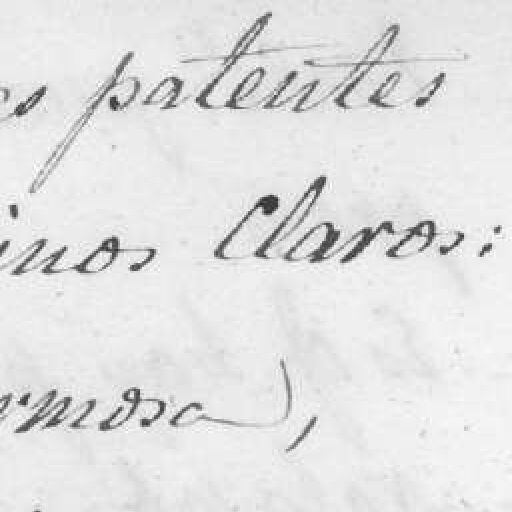 es patentes
inos Claros:
ermosa),